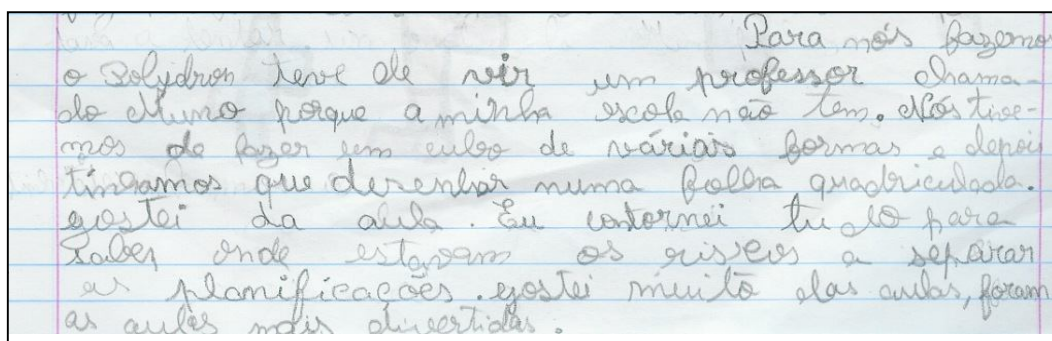 Para nós fazemos
o Polydron teve de vir um professor chama-
do Nuno porque a minha escola não tem. Nós tive-
mos de fazer um cubo de várias formas e depois
tinhamos que desenhar numa folha quadriculada.
gostei da aula. Eu contornei tudo para
saber onde estavam os riscos a separar
as planificações. gostei muito das aulas, foram
as aulas mais divertidas.